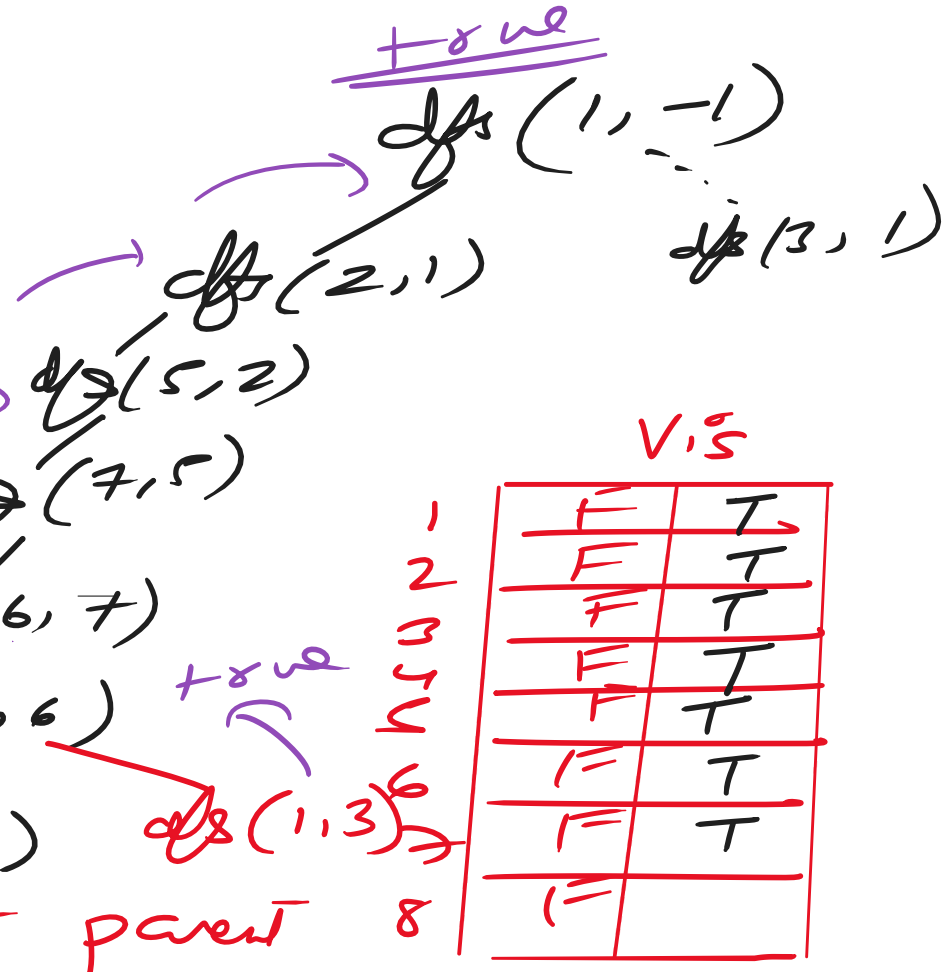 true
dfs (1, -1)
dfs (3, 1)
dfs (2, 1)
dfs (5, 2)
(7, 5)
6, 7)
true
6)
dfs (1, 3)
)
parent
Vis
1 F T
2 F T
3 F T
4 F T
5 F T
6 F T
7 F T
8 F